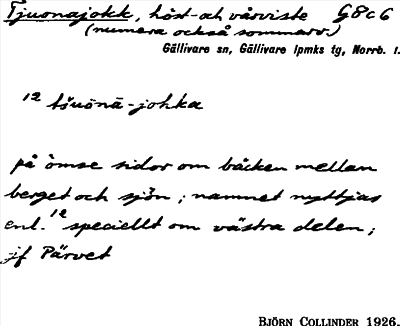 Tjuonajokk, höst- och vårviste G8c6
(numera också sommarv.)
Gällivare sn, Gällivare lpmks tg, Norrb. l.
12 tšuönā-johka
på ömse sidor om bäcken mellan
berget och sjön; namnet nyttjas
enl. 12 speciellt om västra delen;
jf Pärvet
BJÖRN COLLINDER 1926.